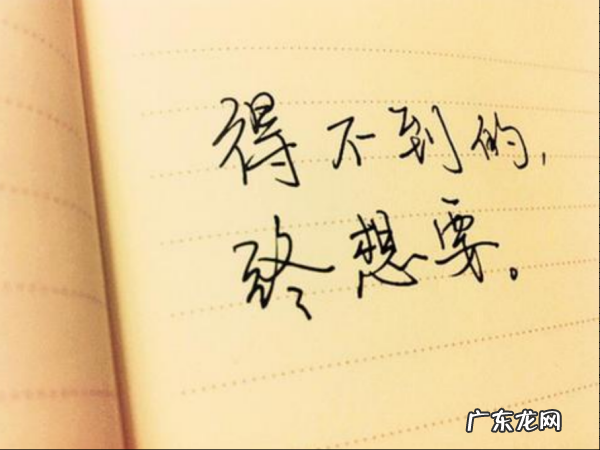 得不到的,
终想要。
广东龙网